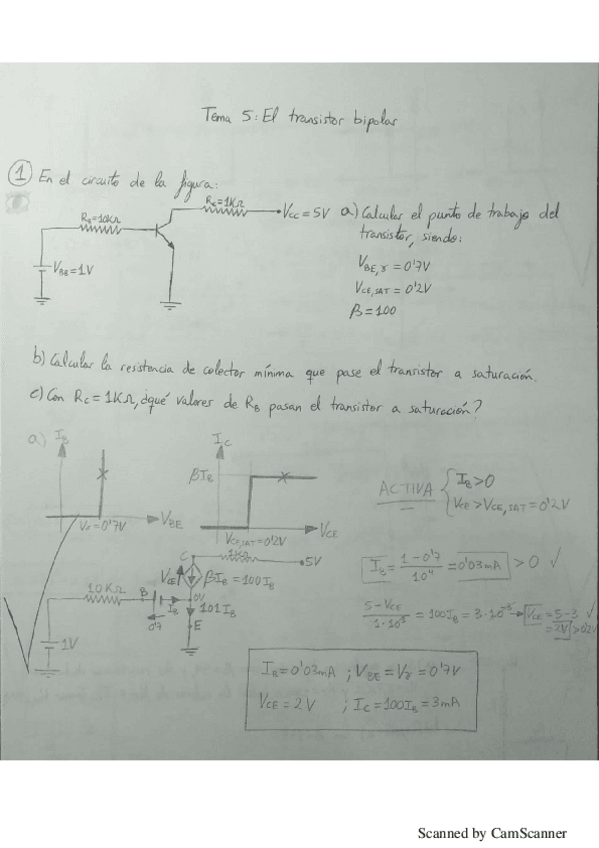 Tema 5: El transistor bipolar
① En el circuito de la figura:
R_B=10KΩ
R_C=1KΩ
V_CC=5V
V_BB=1V
a) Calcular el punto de trabajo del
transistor, siendo:
V_BE,γ=0'7V
V_CE,SAT=0'2V
β=100
b) Calcular la resistencia de colector mínima que pase el transistor a saturación.
c) Con R_C=1KΩ, ¿qué valores de R_B pasan el transistor a saturación?
a) I_B
V_γ=0'7V
V_BE
I_C
βI_B
V_CE,SAT=0'2V
V_CE
ACTIVA { I_B>0
V_CE>V_CE,SAT=0'2V
C
1KΩ
5V
V_CE
βI_B=100I_B
10KΩ
B
0'7
I_B
0V
101I_B
E
1V
I_B = (1-0'7)/10⁴ = 0'03mA > 0 ✓
(5-V_CE)/(1·10³) = 100I_B = 3·10⁻³ → V_CE = 5-3
= 2V > 0'2V ✓
I_B=0'03mA ; V_BE=V_γ=0'7V
V_CE=2V ; I_C=100I_B=3mA
Scanned by CamScanner